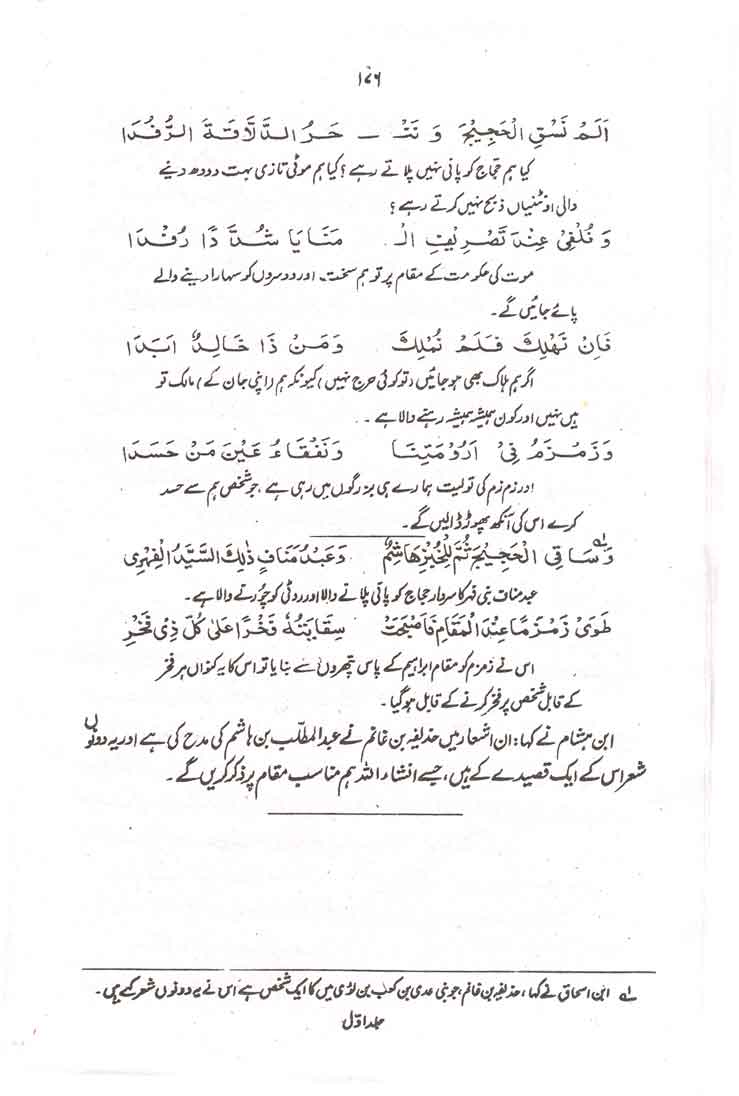 ۱۷۶
اَلَمْ نَسْقِ الْحَجِيْجَ وَ نَنْـ ـحَرُ الدَّلَّافَةَ الرُّفُدَا
کیا ہم حجاج کو پانی نہیں پلاتے رہے؟ کیا ہم موٹی تازی بہت دودھ دینے
والی اونٹنیاں ذبح نہیں کرتے رہے؟
وَ نُلْفٰی عِنْدَ تَصْرِيْفِ الْـ مَنَايَا شُدَّدًا رُفُدَا
موت کی حکومت کے مقام پر تو ہم سخت اور دوسروں کو سہارا دینے والے
پائے جائیں گے۔
فَاِنْ نَهْلِكْ فَلَمْ نُمْلَكْ وَمَنْ ذَا خَالِدٌ اَبَدَا
اگر ہم ہلاک بھی ہو جائیں (تو کوئی حرج نہیں) کیونکہ ہم (اپنی جان کے) مالک تو
ہیں نہیں اور کون ہمیشہ ہمیشہ رہنے والا ہے۔
وَزَمْزَمُ فِیْ اَرُوْمَتِنَا وَنَفْقَاءُ عَيْنَ مَنْ حَسَدَا
اور زم زم کی تولیت ہمارے ہی بزرگوں میں رہی ہے، جو شخص ہم سے حسد
کرے اس کی آنکھ پھوڑ ڈالیں گے۔
وَسَاقِی الْحَجِيْجِ ثُمَّ لِلْخُبْزِ هَاشِمٌ وَعَبْدُ مَنَافٍ ذٰلِكَ السَّيِّدُ الْفِهْرِی
عبد مناف بنی فہر کا سردار حجاج کو پانی پلانے والا اور روٹی کو چورنے والا ہے۔
طَوٰی زَمْزَمًا عِنْدَ الْمَقَامِ فَاَصْبَحَتْ سِقَايَتُهٗ فَخْرًا عَلٰی كُلِّ ذِی فَخْرِ
اس نے زمزم کو مقام ابراہیم کے پاس پتھروں سے بنایا تو اس کا یہ کنواں ہر فخر
کے قابل شخص پر فخر کرنے کے قابل ہو گیا۔
ابن ہشام نے کہا: ان اشعار میں حذیفہ بن غانم نے عبدالمطلب بن ہاشم کی مدح کی ہے اور یہ دونوں
شعر اس کے ایک قصیدے کے ہیں، جسے انشاء اللہ ہم مناسب مقام پر ذکر کریں گے۔
لہ ابن اسحاق نے کہا، حذیفہ بن غانم، جو بنی عدی بن کعب بن لوی میں کا ایک شخص ہے اس نے یہ دونوں شعر کہے ہیں۔
جلد اول